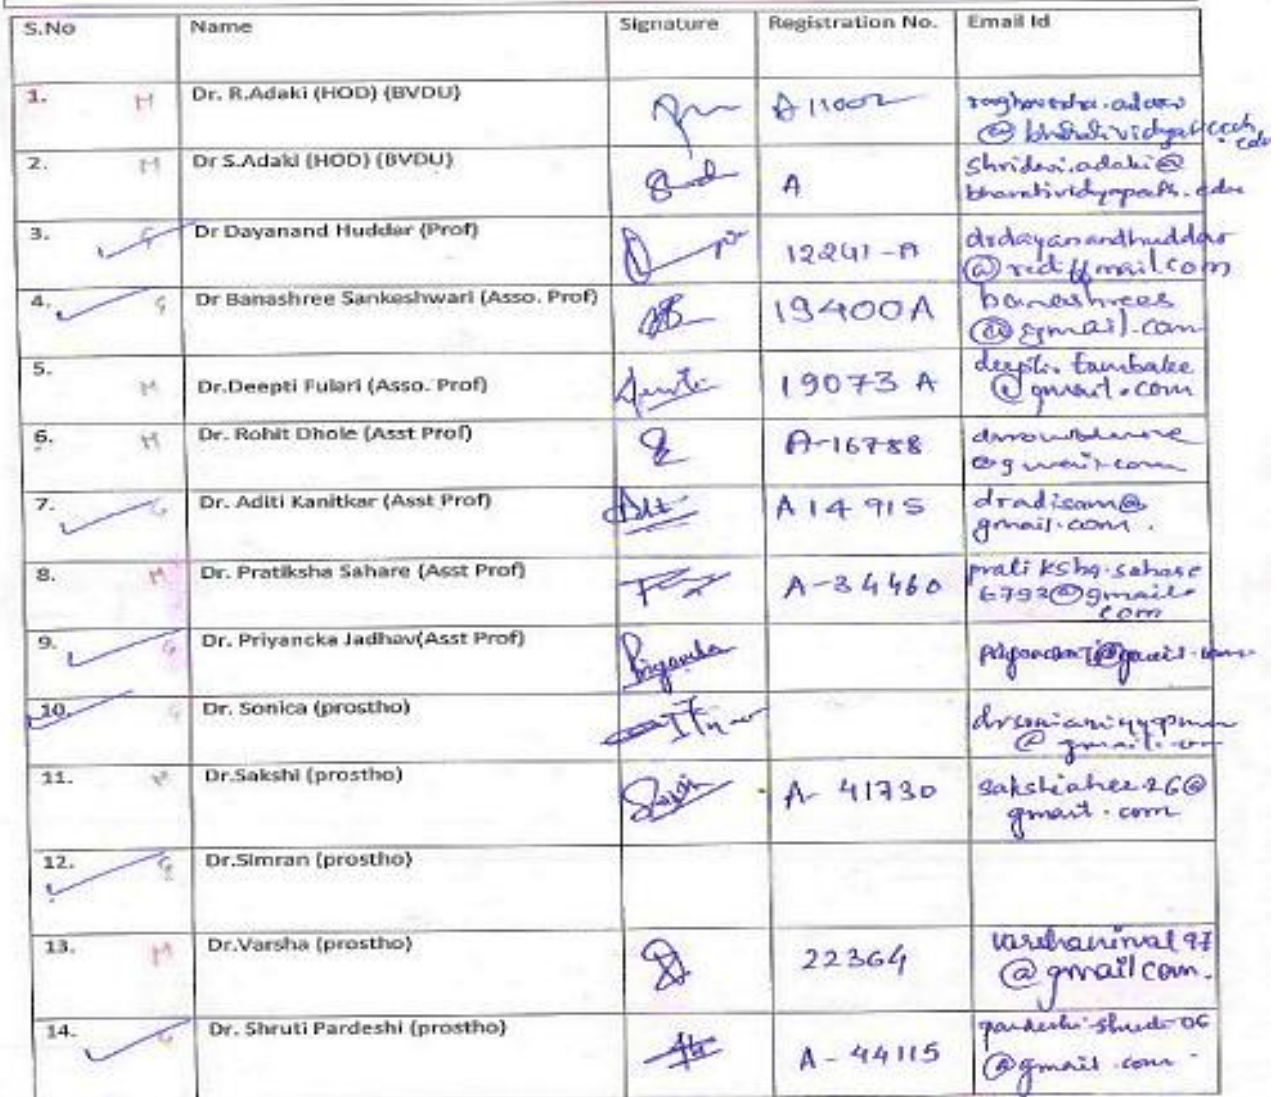 S.No Name Signature Registration No. Email Id
1. M Dr. R.Adaki (HOD) (BVDU) A 11002
2. M Dr S.Adaki (HOD) (BVDU) A shridevi.adaki@
bharatividyapeeth.edu
3. G Dr Dayanand Huddar (Prof) 12241-A drdayanandhuddar
@rediffmail.com
4. G Dr Banashree Sankeshwari (Asso. Prof) 19400A banashrees
@gmail.com
5. M Dr.Deepti Fulari (Asso. Prof) 19073 A deepti.tambake
@gmail.com
6. M Dr. Rohit Dhole (Asst Prof) A-16788
@gmail.com
7. G Dr. Aditi Kanitkar (Asst Prof) A 14915 dradisam@
gmail.com.
8. M Dr. Pratiksha Sahare (Asst Prof) A-34460 pratiksha.sahare
6792@gmail.
com
9. G Dr. Priyancka Jadhav(Asst Prof)
10. G Dr. Sonica (prostho)
11. M Dr.Sakshi (prostho) A- 41730 sakshiaher26@
gmail.com
12. G Dr.Simran (prostho)
13. M Dr.Varsha (prostho) 22364
@gmailcom.
14. G Dr. Shruti Pardeshi (prostho) A- 44115
@gmail.com